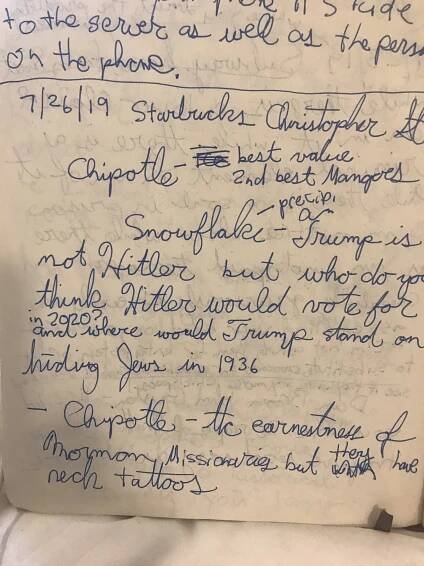 to the server as well as the pers
on the phone.
7/26/19 Starbucks Christopher St
Chipotle - best value
2nd best Mangoes
precip.
Snowflake - Trump is
not Hitler but who do you
think Hitler would vote for
in 2020?
and where would Trump stand on
hiding Jews in 1936
- Chipotle - the earnestness of
Mormon Missionaries but they have
neck tattoos